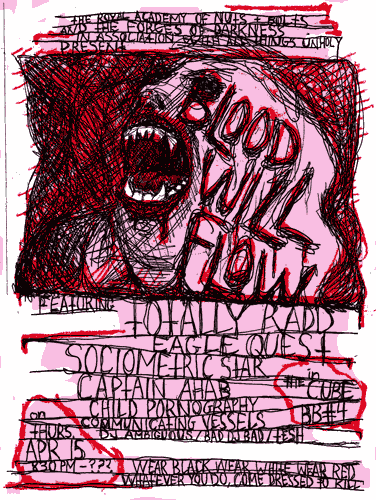 THE ROYAL ACADEMY OF NUTS + BOLTS
AND THE FORGES OF DARKNESS
IN ASSOCIATION WITH ALL THINGS UNHOLY
PRESENT
BLOOD
WILL
FLOW
FEATURING
TOTALLY RADD
EAGLE QUEST
SOCIOMETRIC STAR
CAPTAIN AHAB
CHILD PORNOGRAPHY
COMMUNICATING VESSELS
DJ AMBIGUOUS / BAD DJ BAD / TESH
in
THE CUBE
BB#4
on
THURS
APR 15
8:30 PM - ???
WEAR BLACK WEAR WHITE WEAR RED
WHATEVER YOU DO, COME DRESSED TO KILL